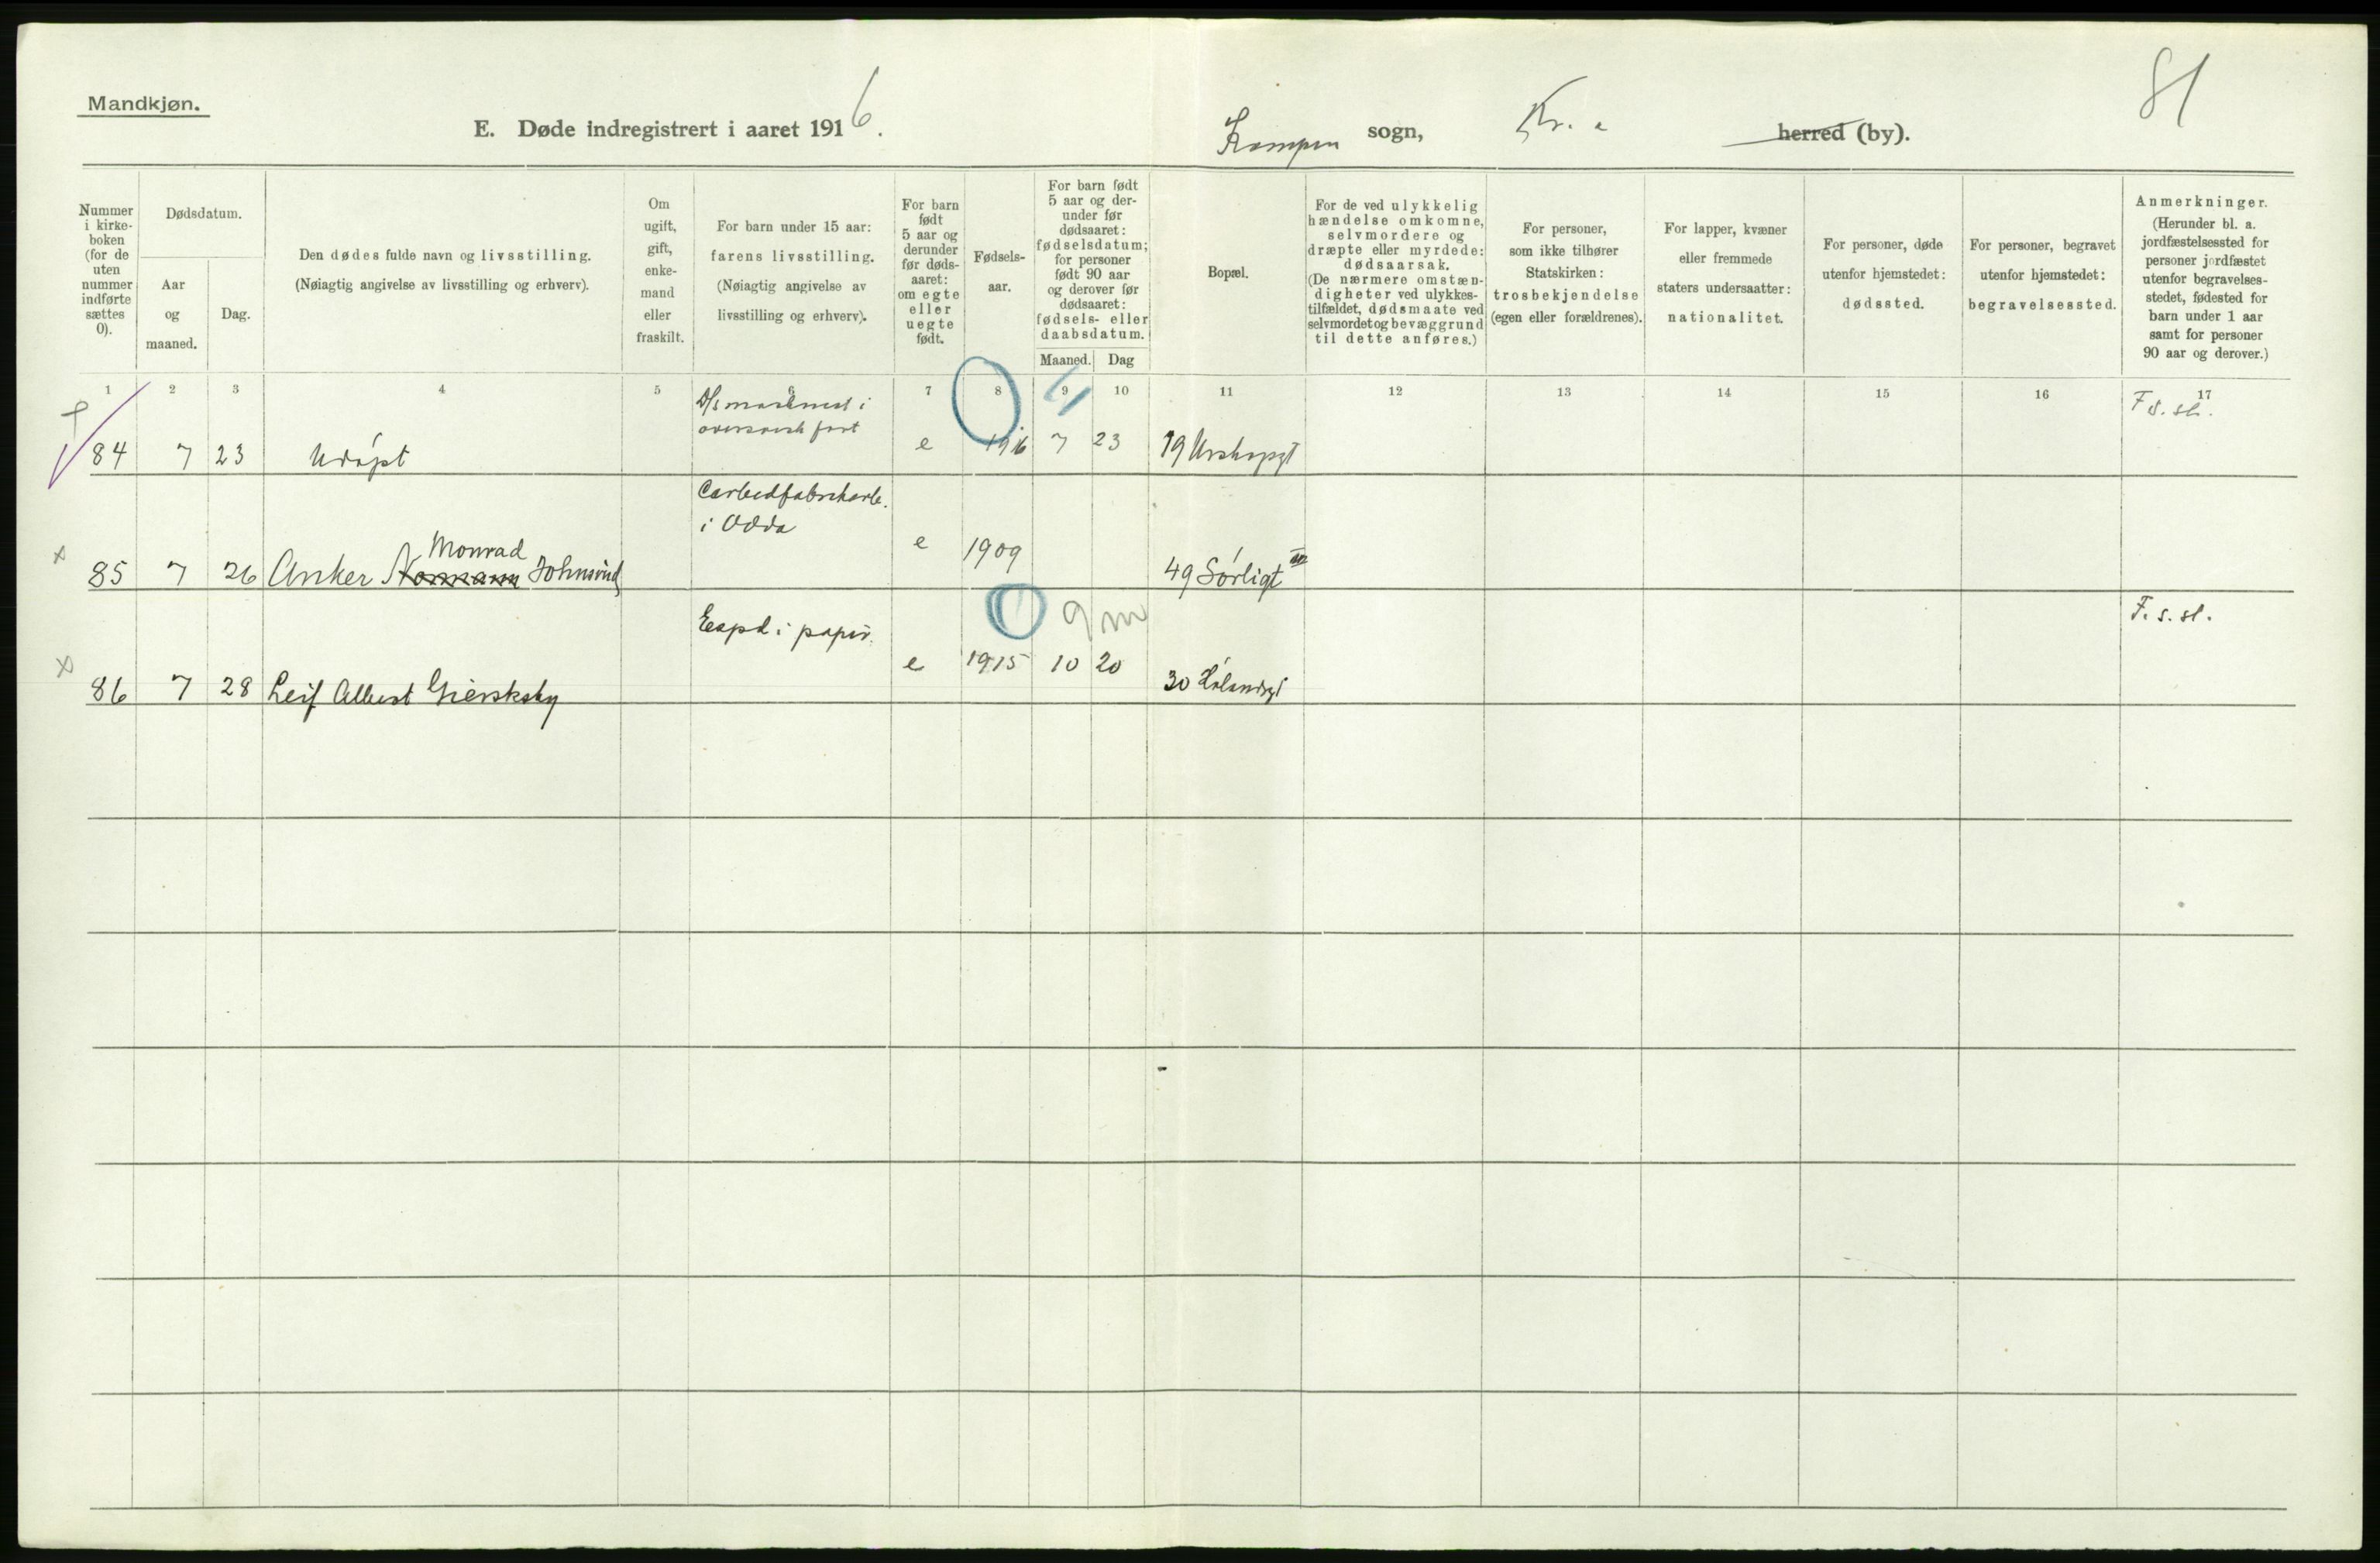 81
Mandkjøn.
E. Døde indregistrert i aaret 1916.
Kampen sogn, Kr.a herred (by).
Nummer i kirke-boken (for de uten nummer indførte sættes 0).
Dødsdatum.
Aar og maaned.
Dag.
Den dødes fulde navn og livsstilling.
(Nøiagtig angivelse av livsstilling og erhverv).
Om ugift, gift, enke-mand eller fraskilt.
For barn under 15 aar:
farens livsstilling.
(Nøiagtig angivelse av livsstilling og erhverv).
For barn født 5 aar og derunder før døds-aaret: om egte eller uegte født.
Fødsels-aar.
For barn født 5 aar og der-under før dødsaaret: fødselsdatum; for personer født 90 aar og derover før dødsaaret: fødsels- eller daabsdatum.
Maaned. Dag
Bopæl.
For de ved ulykkelig hændelse omkomne, selvmordere og dræpte eller myrdede: dødsaarsak.
(De nærmere omstæn-digheter ved ulykkes-tilfældet, dødsmaate ved selvmordet og bevæggrund til dette anføres.)
For personer, som ikke tilhører Statskirken: trosbekjendelse (egen eller forældrenes).
For lapper, kvæner eller fremmede staters undersaatter: nationalitet.
For personer, døde utenfor hjemstedet: dødssted.
For personer, begravet utenfor hjemstedet: begravelsessted.
Anmerkninger.
(Herunder bl. a. jordfæstelsessted for personer jordfæstet utenfor begravelses-stedet, fødested for barn under 1 aar samt for personer 90 aar og derover.)
1 2 3 4 5 6 7 8 9 10 11 12 13 14 15 16 17
F. s. st.
84 7 23 Udøpt e 1916 7 23 19
Carbidfabrikarb.
i Odda
Monrad
85 7 26 Anker Normann Johnsrud e 1909 49 Sørligt
0 9 m
F. s. st.
i papir.
86 7 28 Leif Albert e 1915 10 20 30 Hølandsgt